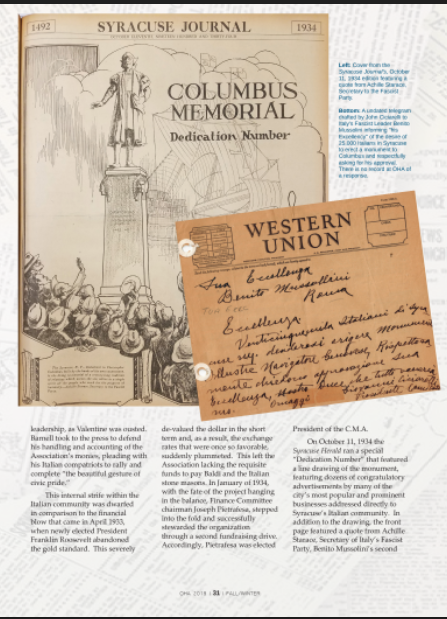 1492
SYRACUSE JOURNAL
1934
COLUMBUS
MEMORIAL
Dedication Number
Left: Cover from the
Syracuse Journal's, October
11, 1934 edition featuring a
quote from Achille Starace,
Secretary to the Fascist
Party.
Bottom: A undated telegram
drafted by John Ciciarelli to
Italy's Fascist Leader Benito
Mussolini informing "his
Excellency" of the desire of
25,000 Italians in Syracuse
to erect a monument to
Columbus and respectfully
asking for his approval.
There is no record at OHA of
a response.
WESTERN
UNION
Sua Eccellenza
Benito Mussolini
Roma
Eccellenza
Venticinquemila Italiani di
desiderosi erigere
Illustre Navigatore Genovese,
approvazione Sua
Eccellenza,
Omaggi
leadership, as Valentine was ousted.
Barnell took to the press to defend
his handling and accounting of the
Association's monies, pleading with
his Italian compatriots to rally and
complete "the beautiful gesture of
civic pride."
This internal strife within the
Italian community was dwarfed
in comparison to the financial
blow that came in April 1933,
when newly elected President
Franklin Roosevelt abandoned
the gold standard. This severely
de-valued the dollar in the short
term and, as a result, the exchange
rates that were once so favorable,
suddenly plummeted. This left the
Association lacking the requisite
funds to pay Baldi and the Italian
stone masons. In January of 1934,
with the fate of the project hanging
in the balance, Finance Committee
chairman Joseph Pietrafesa, stepped
into the fold and successfully
stewarded the organization
through a second fundraising drive.
Accordingly, Pietrafesa was elected
President of the C.M.A.
On October 11, 1934 the
Syracuse Herald ran a special
"Dedication Number" that featured
a line drawing of the monument,
featuring dozens of congratulatory
advertisements by many of the
city's most popular and prominent
businesses addressed directly to
Syracuse's Italian community. In
addition to the drawing, the front
page featured a quote from Achille
Starace, Secretary of Italy's Fascist
Party, Benito Mussolini's second
OHA 2018 | 31 | FALL/WINTER